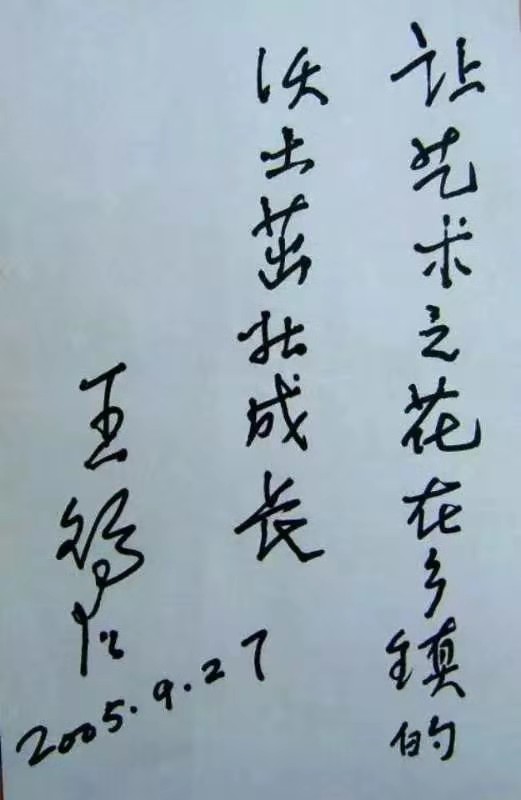 让艺术之花在乡镇的
沃土茁壮成长
王
2005.9.27